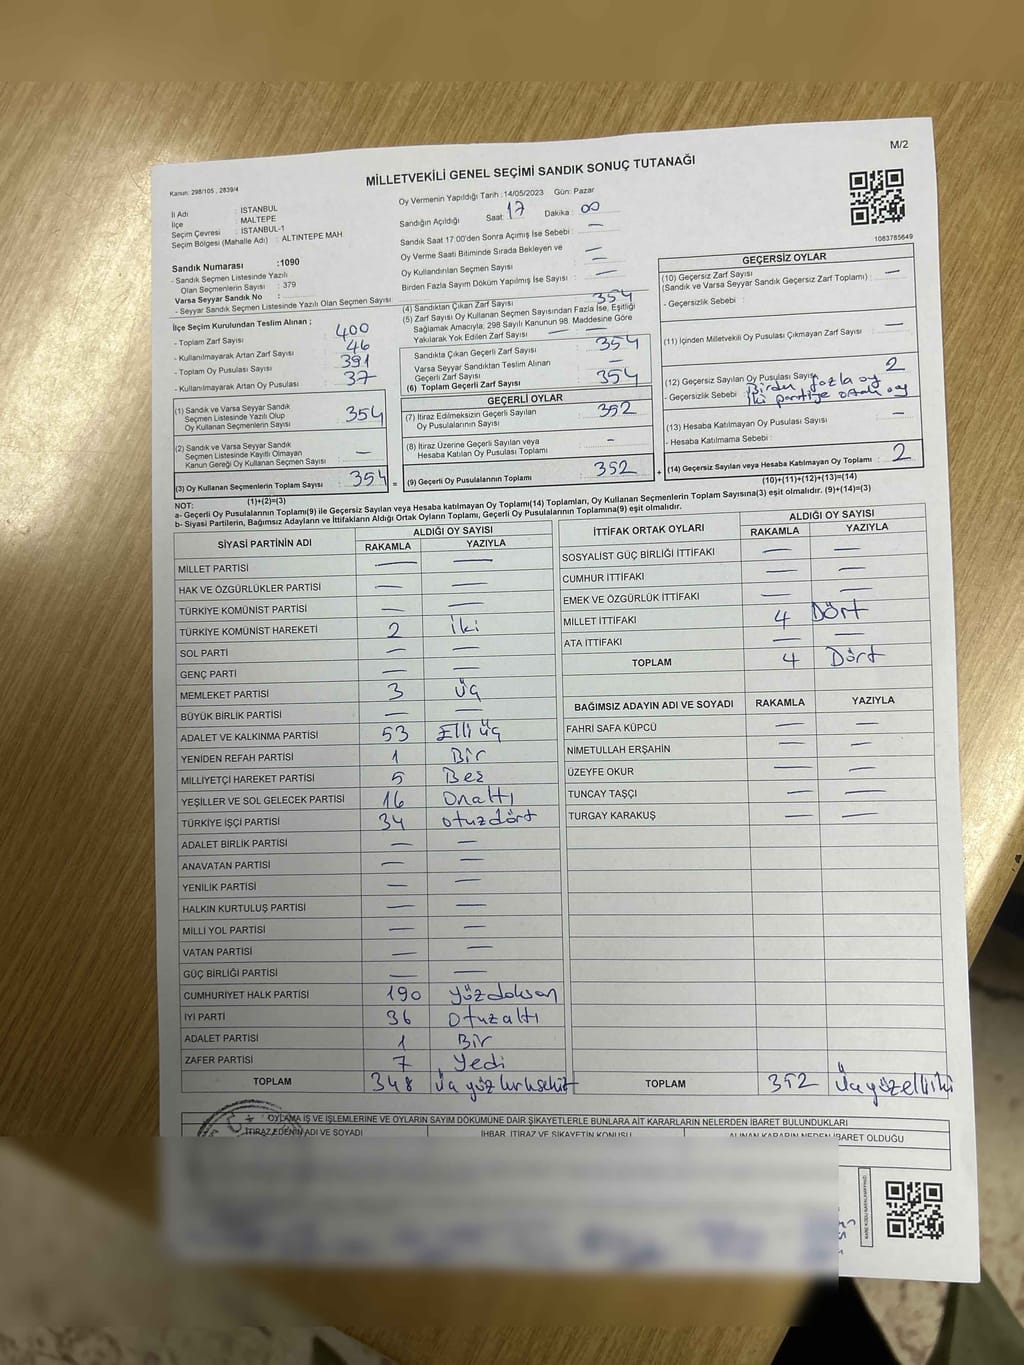 M/2
MİLLETVEKİLİ GENEL SEÇİMİ SANDIK SONUÇ TUTANAĞI
Kanun: 298/105 , 2839/4
İl Adı : İSTANBUL
İlçe : MALTEPE
Seçim Çevresi : İSTANBUL-1
Seçim Bölgesi (Mahalle Adı) : ALTINTEPE MAH.
Sandık Numarası :1090
- Sandık Seçmen Listesinde Yazılı
Olan Seçmenlerin Sayısı : 379
Varsa Seyyar Sandık No :
- Seyyar Sandık Seçmen Listesinde Yazılı Olan Seçmen Sayısı :
Oy Vermenin Yapıldığı Tarih : 14/05/2023 Gün: Pazar
Sandığın Açıldığı Saat: 17 Dakika : 00
Sandık Saat 17.00'den Sonra Açımış İse Sebebi : —
Oy Verme Saati Bitiminde Sırada Bekleyen ve
Oy Kullandırılan Seçmen Sayısı : —
Birden Fazla Sayım Döküm Yapılmış İse Sayısı : —
1083785649
İlçe Seçim Kurulundan Teslim Alınan ;
- Toplam Zarf Sayısı : 400
- Kullanılmayarak Artan Zarf Sayısı : 46
- Toplam Oy Pusulası Sayısı : 391
- Kullanılmayarak Artan Oy Pusulası : 37
(1) Sandık ve Varsa Seyyar Sandık
Seçmen Listesinde Yazılı Olup
Oy Kullanan Seçmenlerin Sayısı : 354
(2) Sandık ve Varsa Seyyar Sandık
Seçmen Listesinde Kayıtlı Olmayan
Kanun Gereği Oy Kullanan Seçmen Sayısı : —
(3) Oy Kullanan Seçmenlerin Toplam Sayısı : 354 =
(1)+(2)=(3)
(4) Sandıktan Çıkan Zarf Sayısı : 354
(5) Zarf Sayısı Oy Kullanan Seçmen Sayısından Fazla İse, Eşitliği
Sağlamak Amacıyla; 298 Sayılı Kanunun 98. Maddesine Göre
Yakılarak Yok Edilen Zarf Sayısı : —
Sandıkta Çıkan Geçerli Zarf Sayısı : 354
Varsa Seyyar Sandıktan Teslim Alınan
Geçerli Zarf Sayısı : —
(6) Toplam Geçerli Zarf Sayısı : 354
GEÇERLİ OYLAR
(7) İtiraz Edilmeksizin Geçerli Sayılan
Oy Pusulalarının Sayısı : 352
(8) İtiraz Üzerine Geçerli Sayılan veya
Hesaba Katılan Oy Pusulası Toplamı : —
(9) Geçerli Oy Pusulalarının Toplamı : 352 +
GEÇERSİZ OYLAR
(10) Geçersiz Zarf Sayısı : —
(Sandık ve Varsa Seyyar Sandık Geçersiz Zarf Toplamı)
- Geçersizlik Sebebi :
(11) İçinden Milletvekili Oy Pusulası Çıkmayan Zarf Sayısı : —
(12) Geçersiz Sayılan Oy Pusulası Sayısı : 2
- Geçersizlik Sebebi : Birden fazla oy
İki partiye ortak oy
(13) Hesaba Katılmayan Oy Pusulası Sayısı : —
- Hesaba Katılmama Sebebi :
(14) Geçersiz Sayılan veya Hesaba Katılmayan Oy Toplamı : 2
(10)+(11)+(12)+(13)=(14)
NOT:
a- Geçerli Oy Pusulalarının Toplamı(9) ile Geçersiz Sayılan veya Hesaba katılmayan Oy Toplamı(14) Toplamları, Oy Kullanan Seçmenlerin Toplam Sayısına(3) eşit olmalıdır. (9)+(14)=(3)
b- Siyasi Partilerin, Bağımsız Adayların ve İttifakların Aldığı Ortak Oyların Toplamı, Geçerli Oy Pusulalarının Toplamına(9) eşit olmalıdır.
SİYASİ PARTİNİN ADI ALDIĞI OY SAYISI
RAKAMLA YAZIYLA
MİLLET PARTİSİ — —
HAK VE ÖZGÜRLÜKLER PARTİSİ — —
TÜRKİYE KOMÜNİST PARTİSİ — —
TÜRKİYE KOMÜNİST HAREKETİ 2 iki
SOL PARTİ — —
GENÇ PARTİ — —
MEMLEKET PARTİSİ 3 üç
BÜYÜK BİRLİK PARTİSİ — —
ADALET VE KALKINMA PARTİSİ 53 Elli üç
YENİDEN REFAH PARTİSİ 1 Bir
MİLLİYETÇİ HAREKET PARTİSİ 5 Beş
YEŞİLLER VE SOL GELECEK PARTİSİ 16 Onaltı
TÜRKİYE İŞÇİ PARTİSİ 34 otuzdört
ADALET BİRLİK PARTİSİ — —
ANAVATAN PARTİSİ — —
YENİLİK PARTİSİ — —
HALKIN KURTULUŞ PARTİSİ — —
MİLLİ YOL PARTİSİ — —
VATAN PARTİSİ — —
GÜÇ BİRLİĞİ PARTİSİ — —
CUMHURİYET HALK PARTİSİ 190 yüzdoksan
İYİ PARTİ 36 otuzaltı
ADALET PARTİSİ 1 Bir
ZAFER PARTİSİ 7 Yedi
TOPLAM 348 Üç yüz kırksekiz
İTTİFAK ORTAK OYLARI ALDIĞI OY SAYISI
RAKAMLA YAZIYLA
SOSYALİST GÜÇ BİRLİĞİ İTTİFAKI — —
CUMHUR İTTİFAKI — —
EMEK VE ÖZGÜRLÜK İTTİFAKI — —
MİLLET İTTİFAKI 4 Dört
ATA İTTİFAKI — —
TOPLAM 4 Dört
BAĞIMSIZ ADAYIN ADI VE SOYADI RAKAMLA YAZIYLA
FAHRİ SAFA KÜPCÜ — —
NİMETULLAH ERŞAHİN — —
ÜZEYFE OKUR — —
TUNCAY TAŞÇI — —
TURGAY KARAKUŞ — —
TOPLAM 352 Üçyüzelliiki
OYLAMA İŞ VE İŞLEMLERİNE VE OYLARIN SAYIM DÖKÜMÜNE DAİR ŞİKAYETLERLE BUNLARA AİT KARARLARIN NELERDEN İBARET BULUNDUKLARI
İTİRAZ EDENİN ADI VE SOYADI İHBAR, İTİRAZ VE ŞİKAYETİN KONUSU ALINAN KARARIN NEDEN İBARET OLDUĞU